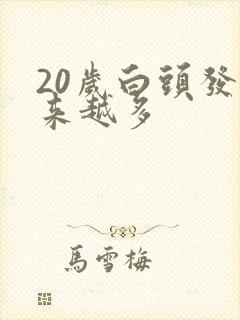 20歲白頭發
來越多
馬雪梅